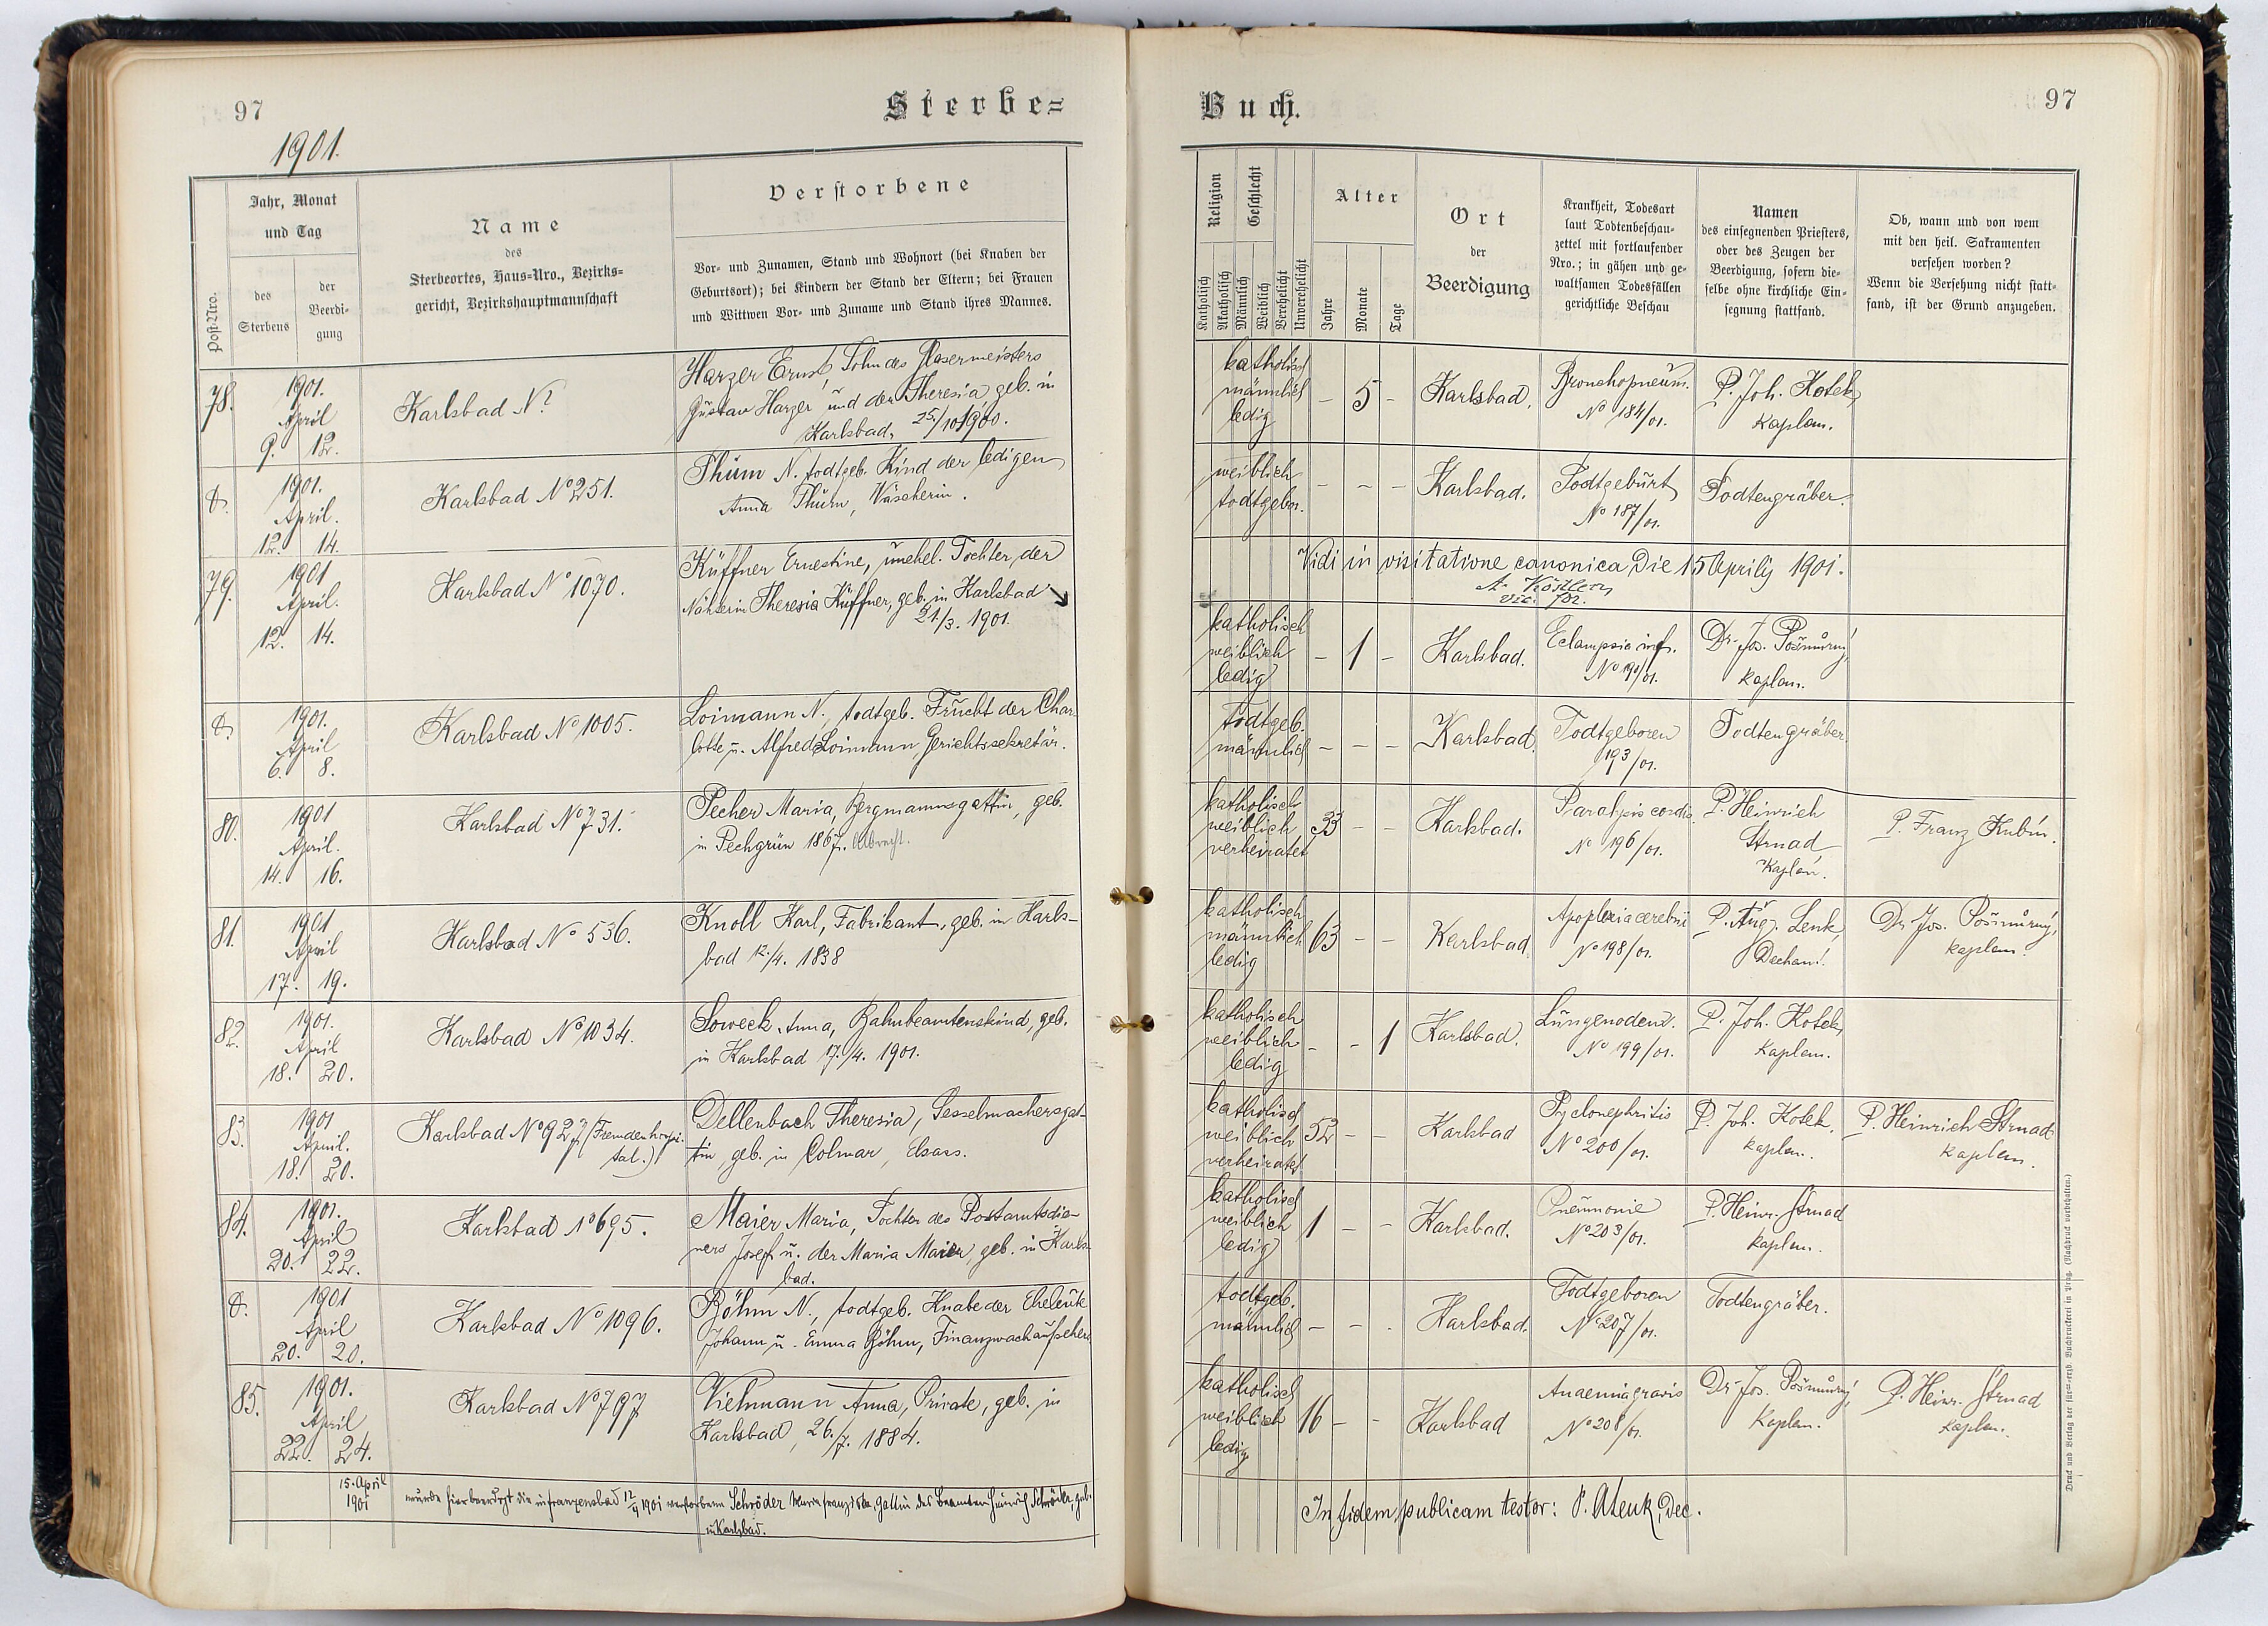 97
Sterbe=
1901.
Post-Nro.
Jahr, Monat
und Tag
des
Sterbens
der
Beerdi-
gung
Name
des
Sterbeortes, Haus-Nro., Bezirks-
gericht, Bezirkshauptmannschaft
Verstorbene
Vor- und Zunamen, Stand und Wohnort (bei Knaben der
Geburtsort); bei Kindern der Stand der Eltern; bei Frauen
und Wittwen Vor- und Zuname und Stand ihres Mannes.
78.
1901.
April
9. 12.
Karlsbad No
Harzer Ernst, Sohn des Glasermeisters
Gustav Harzer und der Theresia geb. in
Karlsbad, 25./10 1900.
1901.
April.
12. 14.
Karlsbad No 251.
Thüm N. todtgeb. Kind der ledigen
Anna Thüm, Wäscherin.
79.
1901
April.
12. 14.
Karlsbad No 1070.
Küffner Ernestine, unehel. Tochter der
Nähterin Theresia Küffner, geb. in Karlsbad
21./3. 1901.
1901.
April
6. 8.
Karlsbad No 1005.
Loimann N., todtgeb. Frucht der Char-
lotte u. Alfred Loimann Gerichtssekretär.
80.
1901
April.
14. 16.
Karlsbad No 731.
Pecher Maria, Bergmannsgattin, geb.
in Pechgrün 1867. Albrecht.
81.
1901
April
17. 19.
Karlsbad No 536.
Knoll Karl, Fabrikant, geb. in Karls-
bad 12./4. 1838
82.
1901.
April
18. 20.
Karlsbad No 1034.
Soweck Anna, Bahnbeamtenskind, geb.
in Karlsbad 17./4. 1901.
83.
1901
April.
18. 20.
Karlsbad No 927 (Fremdenhospi-
tal.)
Dellenbach Theresia, Sesselmachersgat-
tin, geb. in Colmar, Elsass.
84.
1901.
April
20. 22.
Karlsbad No 695.
Maier Maria, Tochter des Postamtsdie-
ners Josef u. der Maria Maier, geb. in Karls-
bad.
1901
April
20. 20.
Karlsbad No 1096.
Böhm N., todtgeb. Knabe der Eheleute
Johann u. Emma Böhm, Finanzwachaufseher
85.
1901.
April
22. 24.
Karlsbad No 797
Viehmann Anna, Private, geb. in
Karlsbad, 26./7. 1884.
15. April
1901
wurde hier beerdigt die in Franzensbad 12/4 1901 verstorbene Schröder Maria Franziska Gattin des Beamten Heinrich Schröder, geb.
in Karlsbad.
Buch.
97
Religion
Geschlecht
Katholisch
Akatholisch
Männlich
Weiblich
Verehelicht
Unverehelicht
Alter
Jahre
Monate
Tage
Ort
der
Beerdigung
Krankheit, Todesart
laut Todtenbeschau-
zettel mit fortlaufender
Nro.; in gähen und ge-
waltsamen Todesfällen
gerichtliche Beschau
Namen
des einsegnenden Priesters,
oder des Zeugen der
Beerdigung, sofern die-
selbe ohne kirchliche Ein-
segnung stattfand.
Ob, wann und von wem
mit den heil. Sakramenten
versehen worden?
Wenn die Versehung nicht statt-
fand, ist der Grund anzugeben.
katholisch
männlich
ledig
– 5 –
Karlsbad.
Bronchopneum.
No 184/01.
P. Joh. Kotek,
Kaplan.
weiblich
todtgebor.
– – –
Karlsbad.
Todtgeburt
No 187/01.
Todtengräber.
Vidi in visitatione canonica Die 15 Aprilis 1901.
A. Köstlern
vic. for.
katholisch
weiblich
ledig
– 1 –
Karlsbad.
Eclampsia inf.
No 191/01.
Dr. Jos. Pošmůrný,
Kaplan.
todtgeb.
männlich
– – –
Karlsbad.
Todtgeboren
193/01.
Todtengräber
katholisch
weiblich
verheiratet
33 – –
Karlsbad.
Paralysis cordis
No 196/01.
P. Heinrich
Strnad
Kaplan.
P. Franz Kubin.
katholisch
männlich
ledig
63 – –
Karlsbad.
Apoplexia cerebri
No 198/01.
P. Aug. Lenk,
Dechant.
Dr. Jos. Pošmůrný,
Kaplan.
katholisch
weiblich
ledig
– – 1
Karlsbad.
Lungenödem.
No 199/01.
P. Joh. Kotek,
Kaplan.
katholisch
weiblich
verheiratet
52 – –
Karlsbad
Pyelonephritis
No 200/01.
P. Joh. Kotek,
Kaplan.
P. Heinrich Strnad
Kaplan.
katholisch
weiblich
ledig
1 – –
Karlsbad.
Pneumonie
No 203/01.
P. Heinr. Strnad
Kaplan.
todtgeb.
männlich
– – –
Karlsbad.
Todtgeboren
No 207/01.
Todtengräber.
katholisch
weiblich
ledig
16 – –
Karlsbad
Anaemia gravis
No 208/01.
Dr. Jos. Pošmůrný,
Kaplan.
P. Heinr. Strnad
Kaplan.
In fidem publicam testor: P. A Lenk, Dec.
Druck und Verlag der fürst-erzb. Buchdruckerei in Prag. (Nachdruck vorbehalten.)